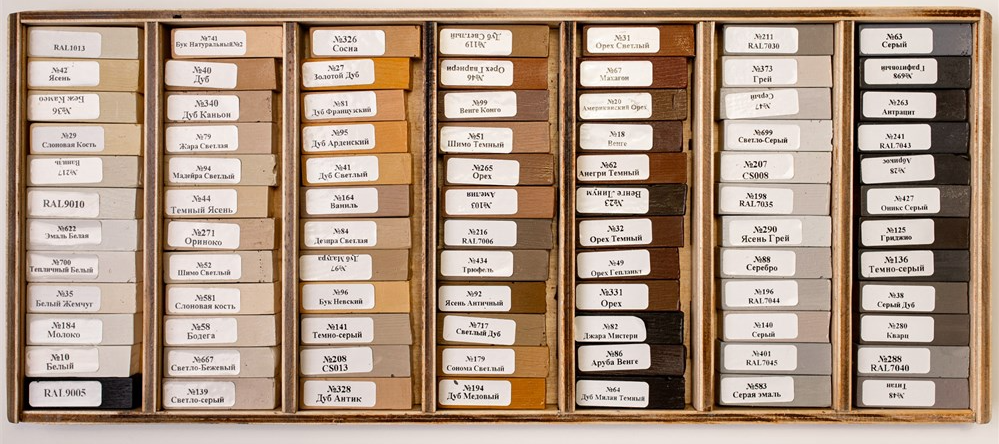 RAL1013
№42
Ясень
Беж Камео
№36
№29
Слоновая Кость
Ваниль
№217
RAL9010
№622
Эмаль Белая
№700
Тепличный Белый
№35
Белый Жемчуг
№184
Молоко
№10
Белый
RAL9005
№741
Бук Натуральный№2
№40
Дуб
№340
Дуб Каньон
№79
Жара Светлая
№94
Мадейра Светлый
№44
Темный Ясень
№271
Ориноко
№52
Шимо Светлый
№581
Слоновая кость
№58
Бодега
№667
Светло-Бежевый
№139
Светло-серый
№326
Сосна
№27
Золотой Дуб
№81
Дуб Французский
№95
Дуб Арденский
№41
Дуб Светлый
№164
Ваниль
№84
Дезира Светлая
№97
№96
Бук Невский
№141
Темно-серый
№208
CS013
№328
Дуб Антик
Дуб Светлый
№119
Орех Гварнери
№46
№99
Венге Конго
№51
Шимо Темный
№265
Орех
Амелия
№103
№216
RAL7006
№434
Трюфель
№92
Ясень Античный
№717
Светлый Дуб
№179
Сонома Светлый
№194
Дуб Медовый
№31
Орех Светлый
№67
Махагон
№20
Американский Орех
№18
Венге
№62
Анегри Темный
Венге Линум
№23
№32
Орех Темный
№49
Орех Гепланкт
№331
Орех
№82
Джара Мистери
№86
Аруба Венге
№64
Дуб Милан Темный
№211
RAL7030
№373
Грей
Серый
№47
№699
Светло-Серый
№207
CS008
№198
RAL7035
№290
Ясень Грей
№88
Серебро
№196
RAL7044
№140
Серый
№401
RAL7045
№583
Серая эмаль
№63
Серый
Графитовый
№698
№263
Антрацит
№241
RAL7043
Абрикос
№28
№427
Оникс Серый
№125
Гриджио
№136
Темно-серый
№38
Серый Дуб
№280
Кварц
№288
RAL7040
Титан
№48